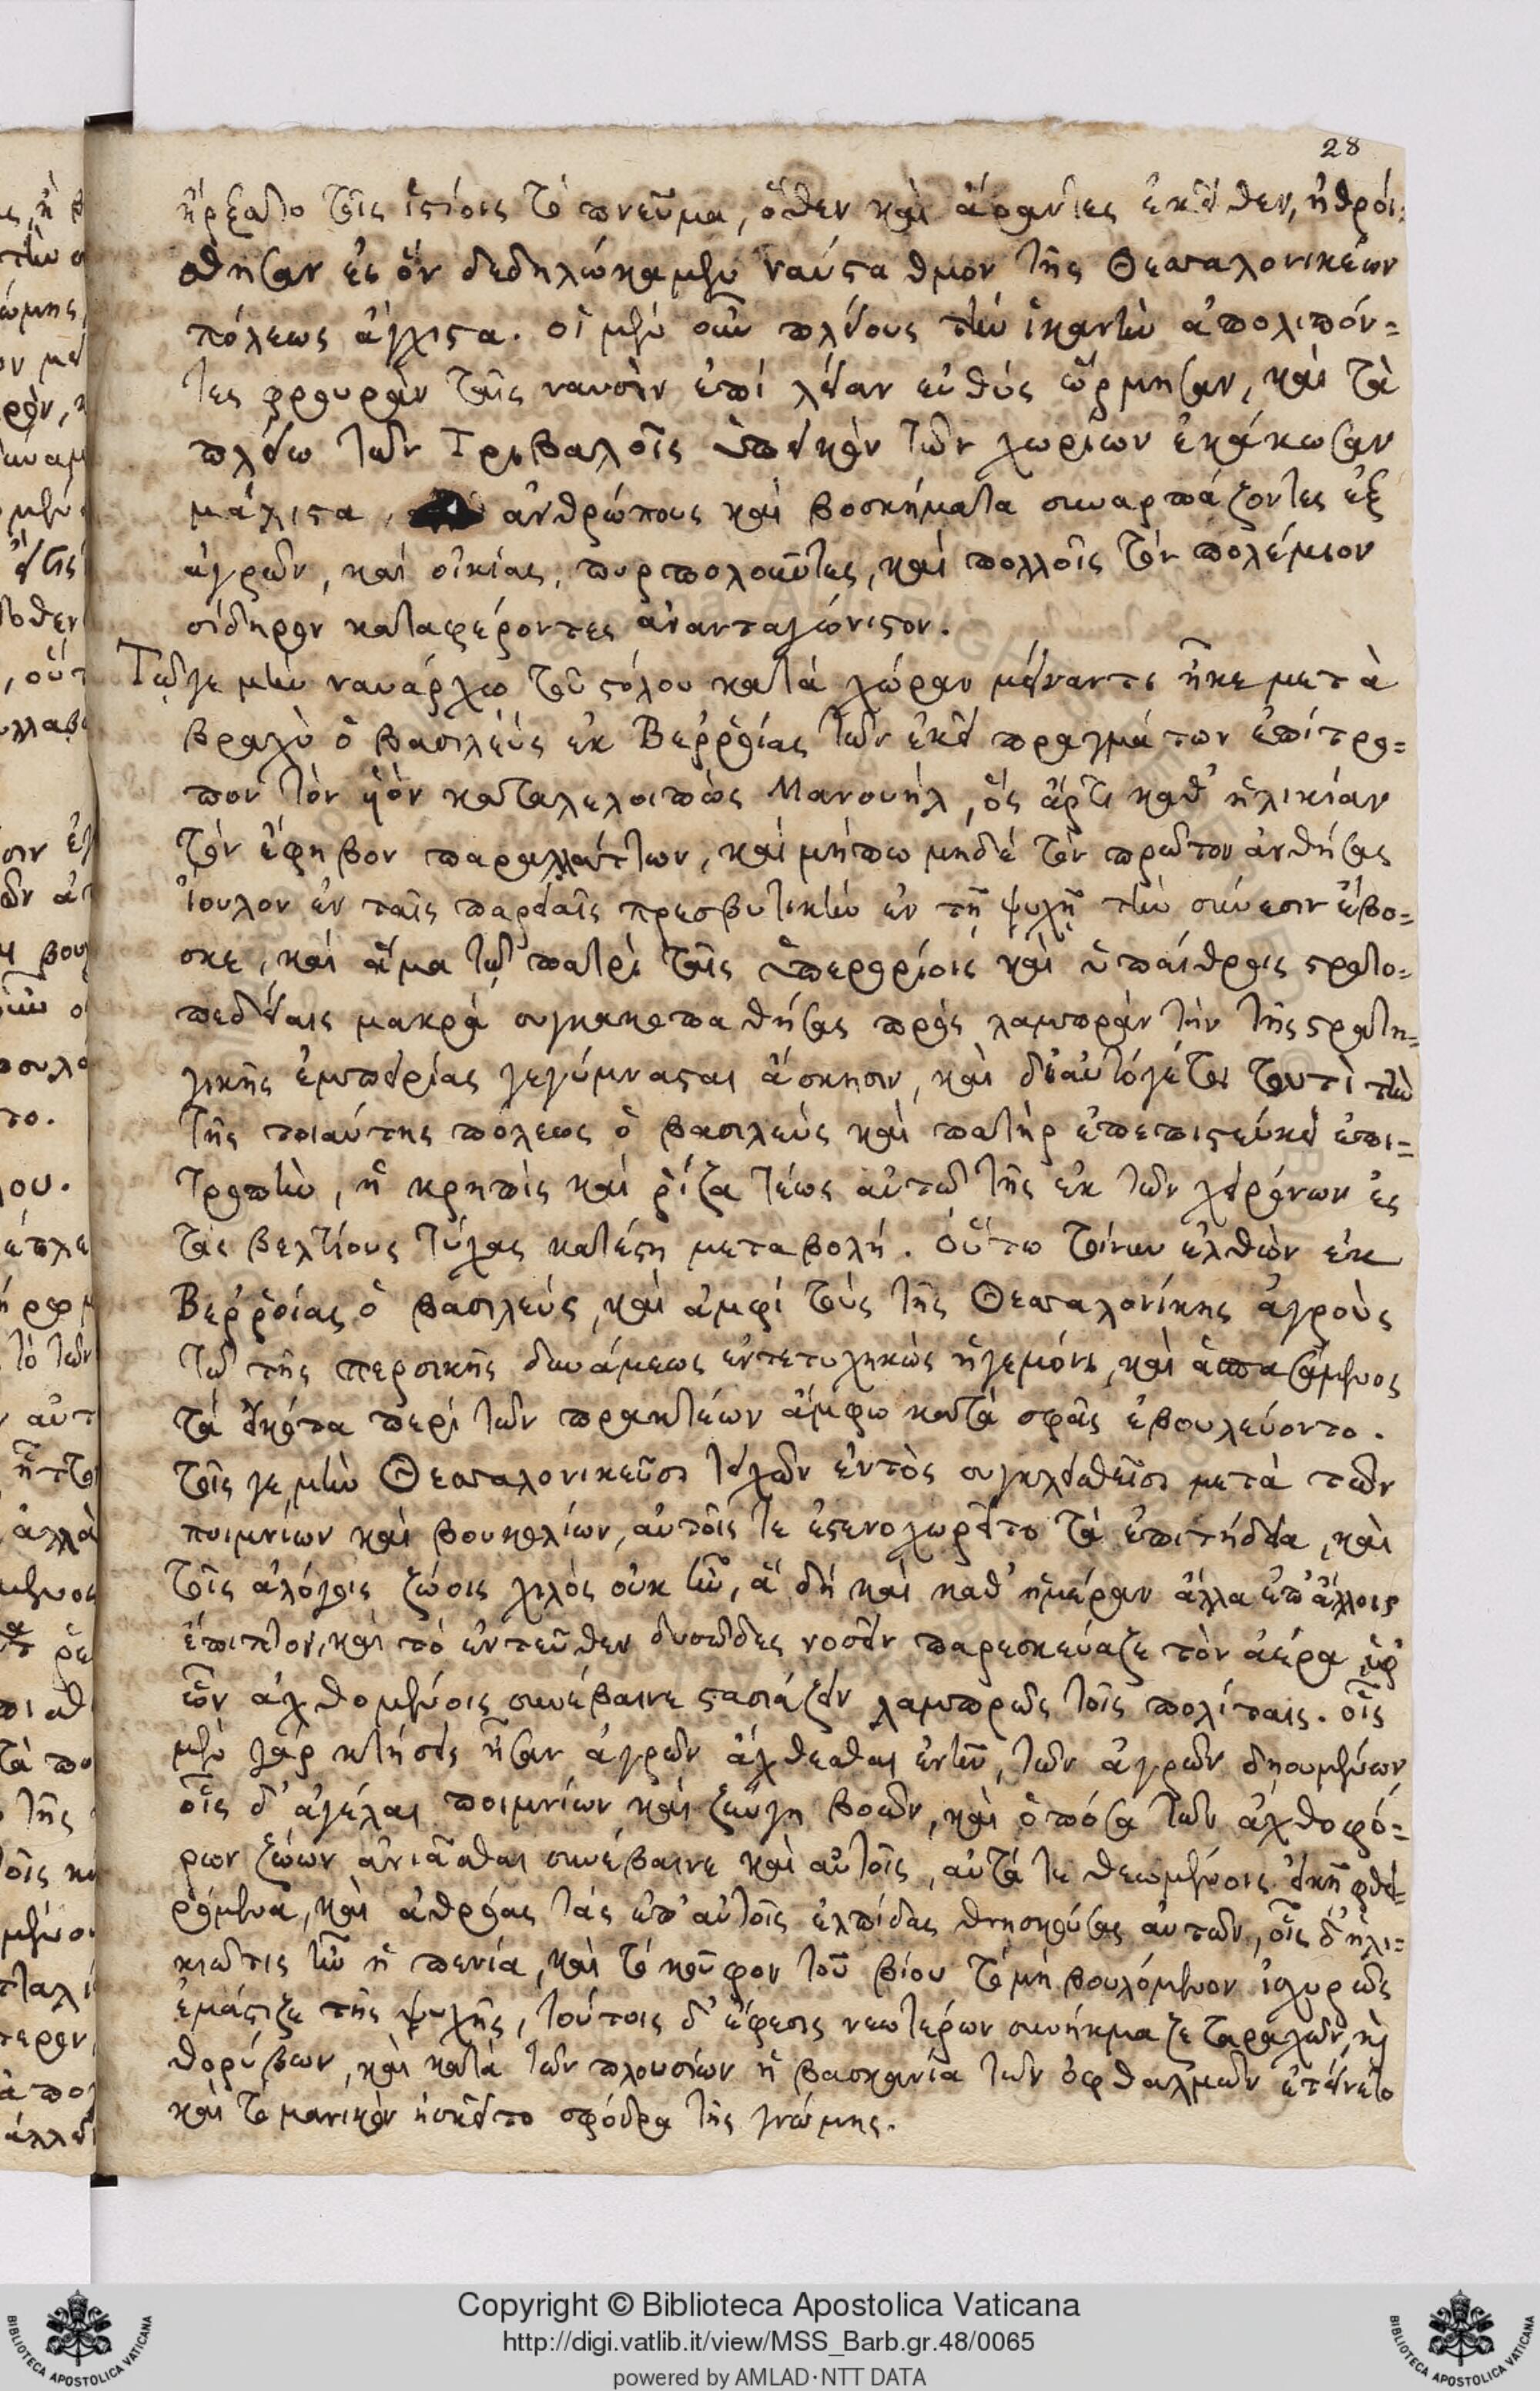 28
ἤρξατο τοῖς ἱστίοις τὸ πνεῦμα, ὅθεν καὶ ἄραντες ἐκεῖθεν, ἠθροί-
σθησαν ἐς ὃν δεδηλώκαμεν ναύσταθμον τῆς Θεσσαλονικέων
πόλεως ἄγχιστα. οἱ μὲν οὖν πλείους τὴν ἱκανὴν ἀπολιπόν-
τες φρουρὰν ταῖς ναυσὶν ἐπὶ λείαν εὐθὺς ὥρμησαν, καὶ τὰ
πλείω τῶν Τριβαλοῖς ὑπεικὸν τῶν χωρίων ἐκάκωσαν
μάλιστα, ἀνθρώπους καὶ βοσκήματα συναρπάζοντες ἐξ
ἀγρῶν, καὶ οἰκίας, πυρπολοῦντες, καὶ πολλοῖς τὸν πολέμιον
σίδηρον καταφέροντες ἀνανταγώνιστον.
Τῷ γε μὴν ναυάρχῳ τοῦ στόλου κατὰ χώραν μείναντι ἧκε μετὰ
βραχὺ ὁ βασιλεὺς ἐκ Βεῤῥοίας τῶν ἐκεῖ πραγμάτων ἐπίτρο-
πον τὸν υἱὸν καταλελοιπὼς Μανουὴλ, ὃς ἄρτι καθ' ἡλικίαν
τὸν ἔφηβον παραλλάττων, καὶ μήπω μηδὲ τὸν πρῶτον ἀνθήσας
ἴουλον ἐν ταῖς παρειαῖς πρεσβυτικὴν ἐν τῇ ψυχῇ τὴν σύνεσιν ἔβο-
σκε, καὶ ἅμα τῷ πατρὶ ταῖς ὑπερορίοις καὶ ὑπαίθροις στρατο-
πεδείαις μακρὰ συγκακοπαθήσας πρὸς λαμπρὰν τὴν τῆς στρατη-
γικῆς ἐμπειρίας γεγύμνασται ἄσκησιν, καὶ δι' αὐτό γέ τοι τουτὶ τὴν
τῆς τοιαύτης πόλεως ὁ βασιλεὺς καὶ πατὴρ ἐπεπιστεύκει ἐπι-
τροπὴν, ἣ κρηπὶς καὶ ῥίζα τέως αὐτῷ τῆς ἐκ τῶν χειρόνων ἐς
τὰς βελτίους τύχας κατέστη μεταβολή. Οὕτω τοίνυν ἐλθὼν ἐκ
Βεῤῥοίας ὁ βασιλεὺς, καὶ ἀμφὶ τοὺς τῆς Θεσσαλονίκης ἀγροὺς
τῷ τῆς περσικῆς δυνάμεως ἐντετυχηκὼς ἡγεμόνι, καὶ ἀσπασάμενος
τὰ εἰκότα περὶ τῶν πρακτέων ἄμφω κατὰ σφᾶς ἐβουλεύοντο.
τοῖς γε μὴν Θεσσαλονικεῦσι τειχῶν ἐντὸς συγκλεισθεῖσι μετὰ τῶν
ποιμνίων καὶ βουκολίων, αὐτοῖς τε ἐστενοχωρεῖτο τὰ ἐπιτήδεια, καὶ
τοῖς ἀλόγοις ζώοις χιλὸς οὐκ ἦν, ἃ δὴ καὶ καθ' ἡμέραν ἄλλα ἐπ' ἄλλοις
ἔπιπτον, καὶ τὸ ἐντεῦθεν δυσῶδες νοσεῖν παρεσκεύαζε τὸν ἀέρα, ὑφ'
ὧν ἀχθομένοις συνέβαινε στασιάζειν λαμπρῶς τοῖς πολίταις. οἷς
μὲν γὰρ κτήσεις ἦσαν ἀγρῶν ἄχθεσθαι ἐνῆν, τῶν ἀγρῶν δῃουμένων,
οἷς δ' ἀγέλαι ποιμνίων καὶ ζεύγη βοῶν, καὶ ὁπόσα τῶν ἀχθοφό-
ρων ζώων ἀνιᾶσθαι συνέβαινε καὶ αὐτοῖς, αὐτά τε θεωμένοις εἰκῆ φθει-
ρόμενα, καὶ ἀθρόας τὰς ἐπ' αὐτοῖς ἐλπίδας θνησκούσας αὐτῶν, οἷς δ' ἡλι-
κιῶτις ἦν ἡ πενία, καὶ τὸ κοῦφον τοῦ βίου τὸ μὴ βουλόμενον ἰσχυρῶς
ἐμάστιζε τῆς ψυχῆς, τούτοις δ' ἔφεσις νεωτέρων συνήκμαζε ταραχῶν, καὶ
θορύβων, καὶ κατὰ τῶν πλουσίων ἡ βασκανία τῶν ὀφθαλμῶν ἐτείνετο
καὶ τὸ μανικὸν ἠσκεῖτο σφόδρα τῆς γνώμης.
Copyright © Biblioteca Apostolica Vaticana
http://digi.vatlib.it/view/MSS_Barb.gr.48/0065
powered by AMLAD·NTT DATA